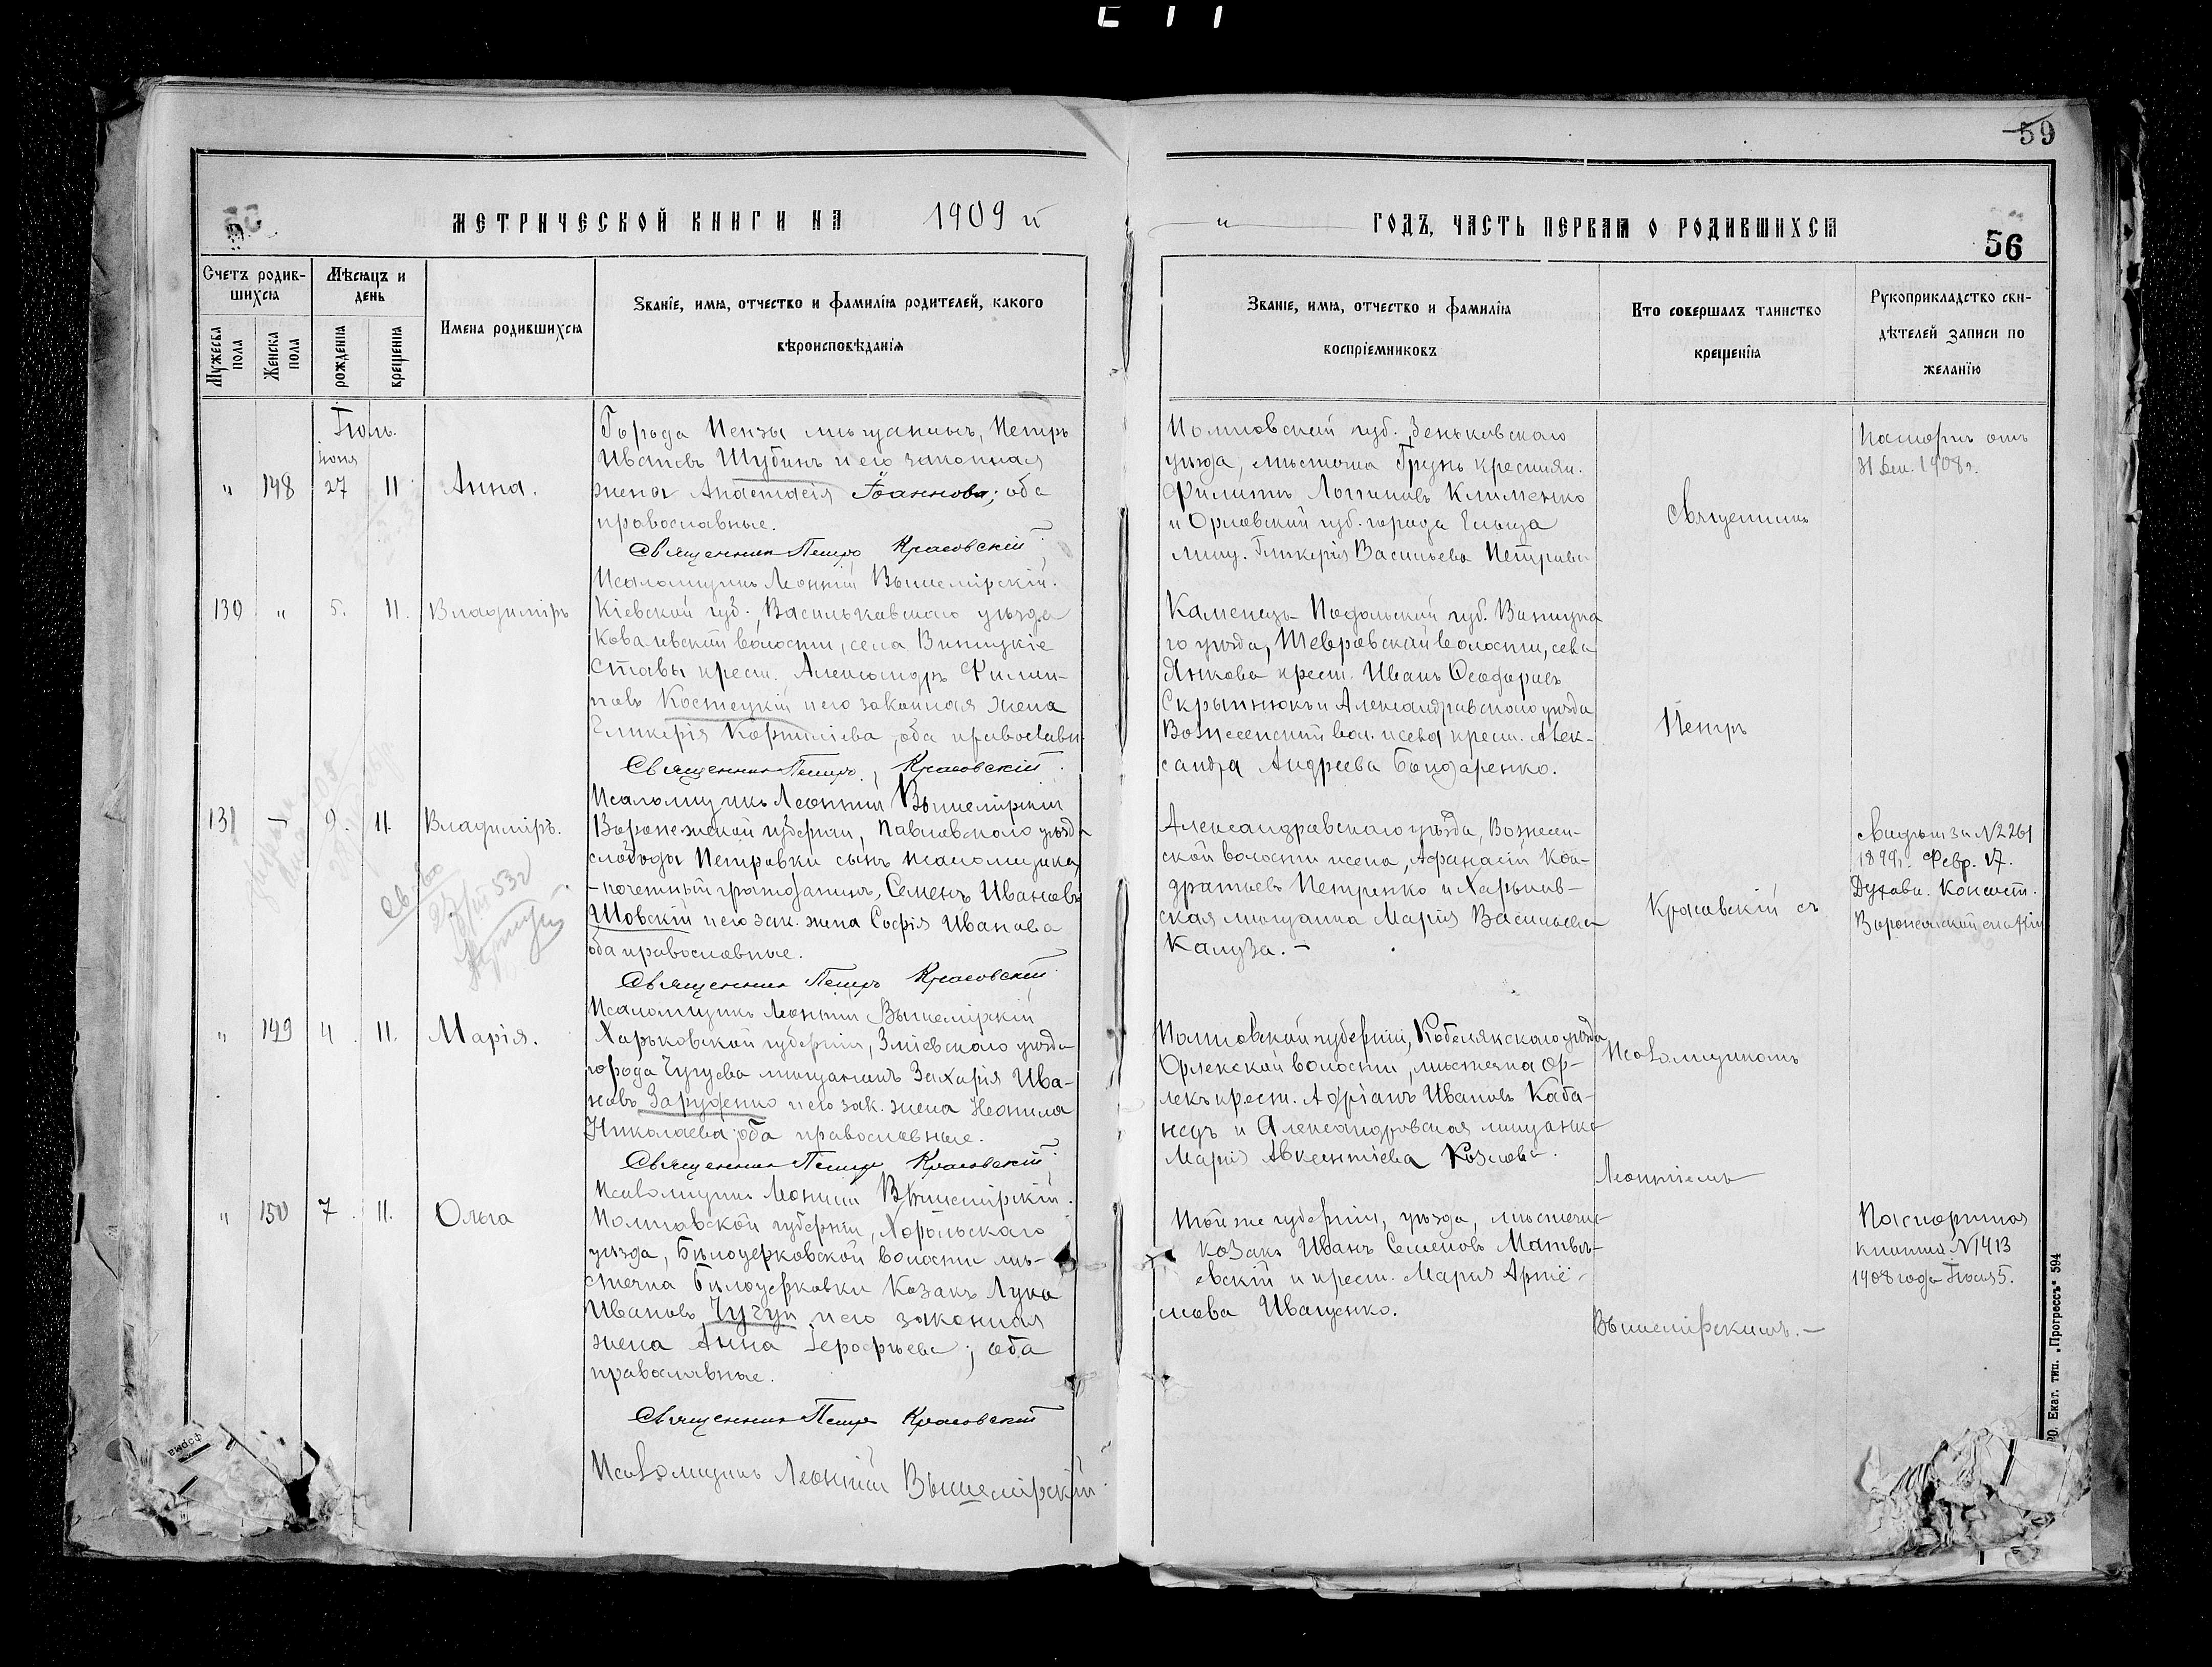 59
МЕТРИЧЕСКОЙ КНИГИ НА 1909 й
ГОДЪ, ЧАСТЬ ПЕРВАЯ О РОДИВШИХСЯ
56
Счетъ родив-
шихся
Мужеска пола
Женска пола
Мѣсяцъ и
день
рожденія
крещенія
Имена родившихся
Званіе, имя, отчество и фамилія родителей, какого
вѣроисповѣданія
Званіе, имя, отчество и фамилія
воспріемниковъ
Кто совершалъ таинство
крещенія
Рукоприкладство сви-
дѣтелей записи по
желанію
Іюль.
Іюня
" 148 27 11 Анна.
Города Пензы мѣщанинъ, Петръ
Ивановъ Шубинъ и его законная
жена Анастасія Іоаннова; оба
православные.
Священникъ Петръ Красовскій
Псаломщикъ Леонтій Вышемірскій.
Полтовской губ. Зеньковскаго
уѣзда, мѣстечка Грунь крестьян.
Филиппъ Логиновъ Клименко
и Орловской губ. города Ельца
мѣщ. Гликерія Васильева Петрова
Священникъ
Паспортъ отъ
31 Дек. 1908 г.
130 " 5. 11. Владиміръ
Кіевской губ., Васильковскаго уѣзда
Ковалевской волости, села Винницкіе
Ставы крест. Александръ Филип-
повъ Костецкій и его законная жена
Гликерія Корниліева, оба православн.
Священникъ Петръ Красовскій
Псаломщикъ Леонтій Вышемірскій
Каменецъ-Подольской губ. Винницка
го уѣзда, села
Янкова крест. Иванъ Ѳеофоровъ
Скрыпнюкъ и Александровскаго уѣзда
Вознесенской вол. и села крест. Алек-
сандра Андреева Бондаренко.
Петръ
131 — 9. 11. Владиміръ.
Воронежской губерніи, Павловскаго уѣзда
слободы Петровки сынъ псаломщика,
-почетный гражданинъ, Семенъ Ивановъ
Шовскій и его зак. жена Софія Иванова
оба православные.
Священникъ Петръ Красовскій
Псаломщикъ Леонтій Вышемірскій
Александровскаго уѣзда, Вознесен-
ской волости и села, Афанасій Кон-
дратьевъ Петренко и Харьков-
ская мѣщанка Марія Васильева
Калуза. —
Красовскій съ
Свидѣт за N2261
1899 г. Февр. 17.
Духовн. Консист.
св-во
53 г
" 149 4. 11. Марія.
Харьковской губерніи, Зміевскаго уѣзда
города Чугуева мѣщанинъ Захарія Ива-
новъ Заруденко и его зак. жена Неонила
Николаева; оба православные.
Священникъ Петръ Красовскій
Псаломщикъ Леонтій Вышемірскій.
Полтовской губерніи, Кобелякскаго уѣзда
Орлекской волости, мѣстечка Ор-
лекъ крест. Адріанъ Ивановъ Каба-
нецъ и Александровская мѣщанка
Марія Авксентіева Козлова.
Псаломщикомъ
Леонтіемъ
" 150 7. 11. Ольга
Полтавской губерніи, Хорольскаго
уѣзда, Бѣлоцерковской волости мѣ-
стечка Бѣлоцерковки Козакъ Лука
Ивановъ Чугуй и его законная
жена Анна Іерофѣева; оба
православные.
Священникъ Петръ Красовскій
Псаломщикъ Леонтій Вышемірскій
Той же губерніи, уѣзда, мѣстечка
козакъ Иванъ Семеновъ Матвѣ-
евскій и крест. Марія Артё-
мова Иващенко.
Вышемірскимъ. —
Паспортная
книжка N1413
1908 года Іюля 5.
Екат. тип. „Прогрессъ" 594
форма